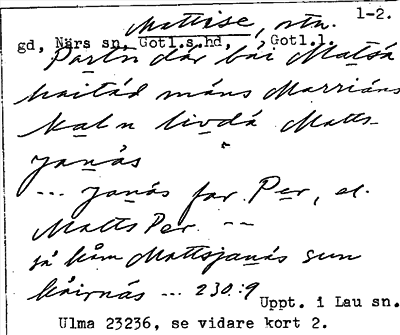 Mattise, stn. 1-2.
gd, Närs sn, Gotl.s.hd, Gotl.l.
Partn där bäi Matsá
haitád máns Marriáns
Kaln livdá Matts-
janás
... janás far Per, el.
Matts Per. --
så kåm Mattsjanás sun
káirnás ... 230:9
Uppt. i Lau sn.
Ulma 23236, se vidare kort 2.